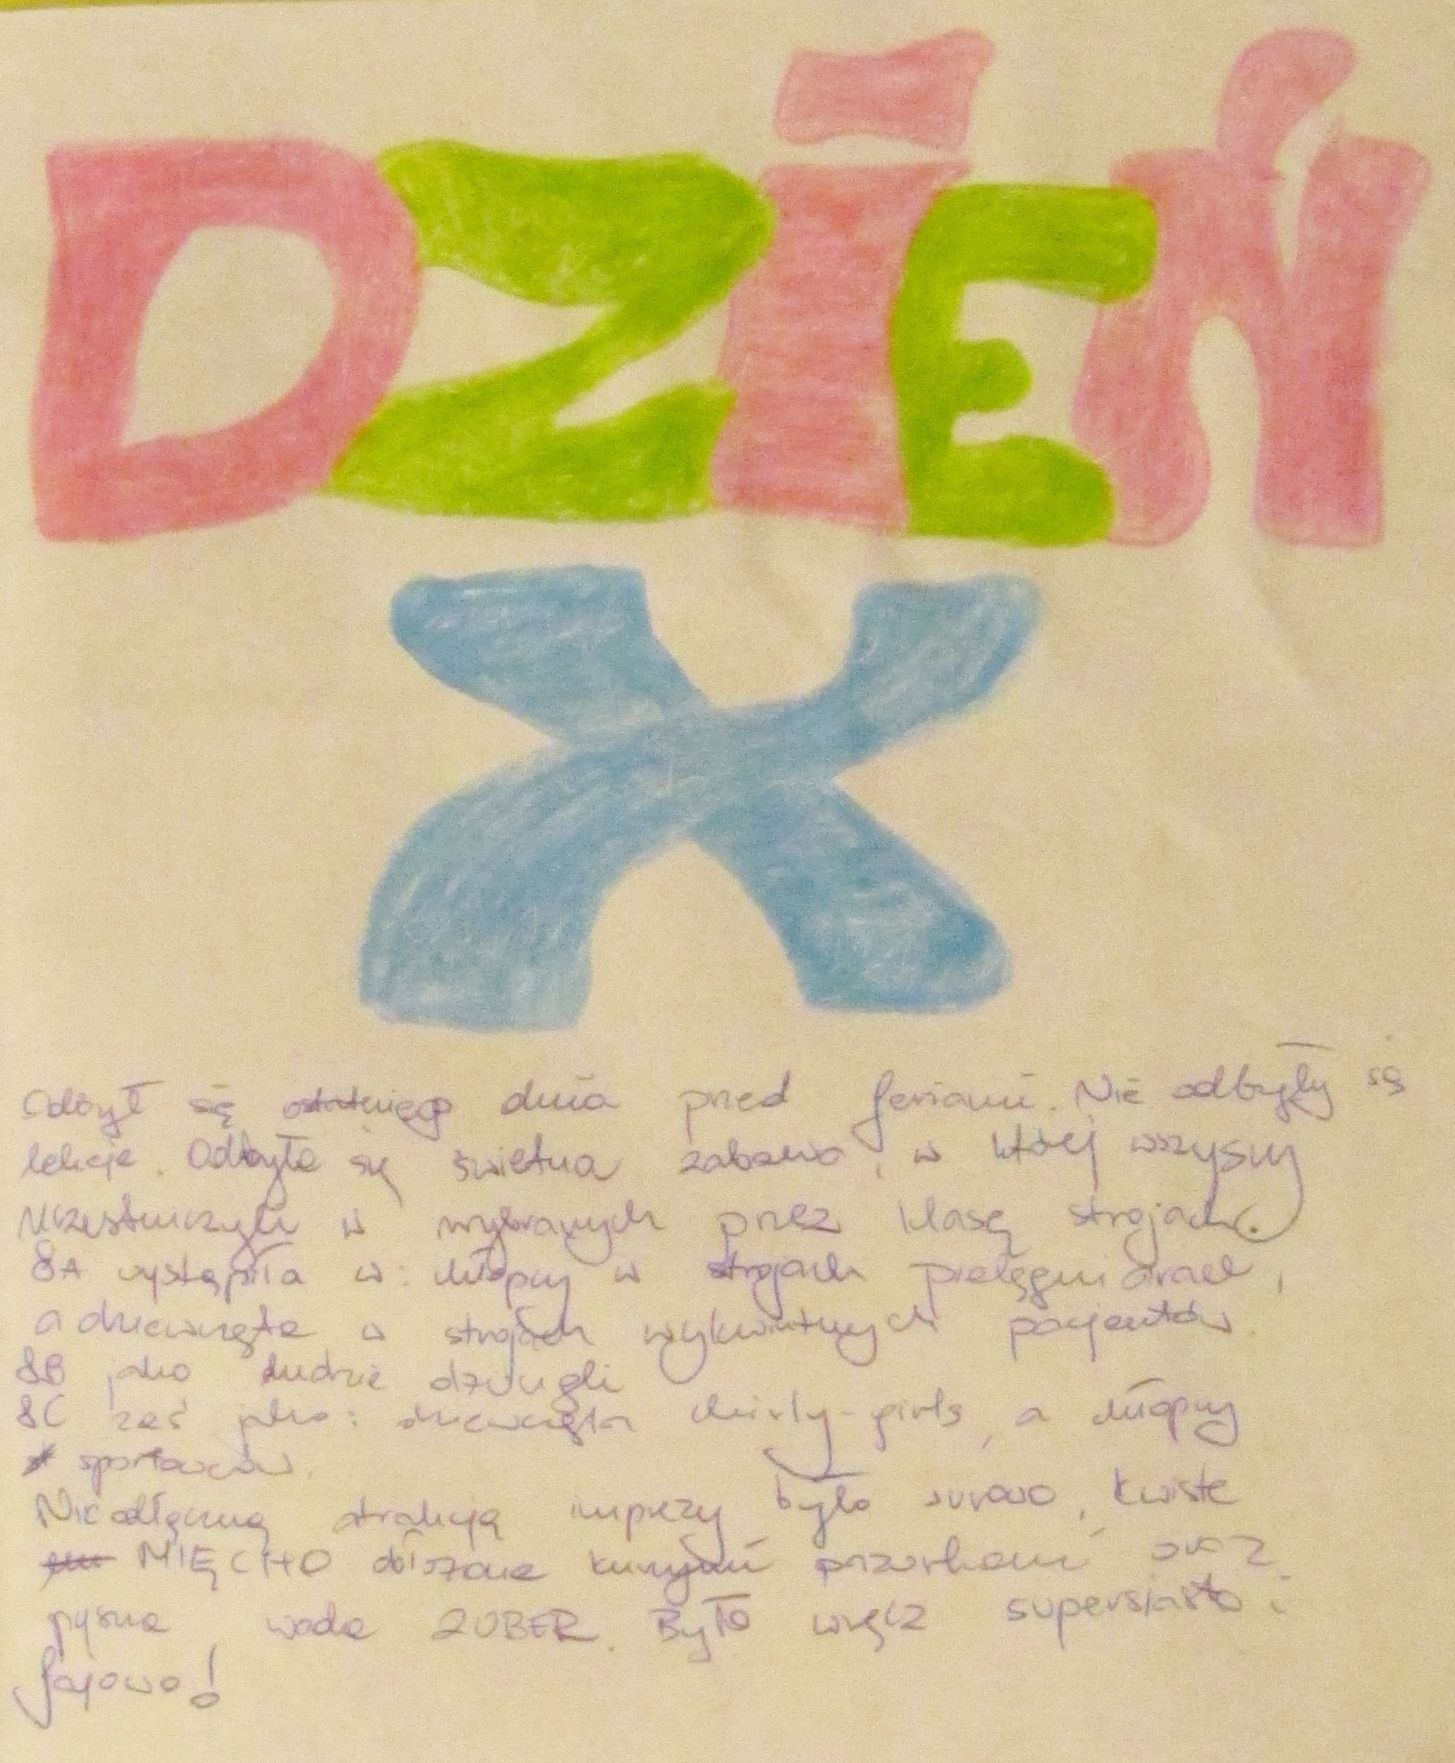 DZIEŃ
X
Odbył się ostatniego dnia przed feriami. Nie odbyły się
lekcje. Odbyła się świetna zabawa, w której wszyscy
uczestniczyli w wybranych przez klasę strojach.
8A wystąpiła w: chłopcy w strojach pielęgniarek,
a dziewczęta w strojach wykwintnych pacjentów.
8B jako ludzie dżungli
8C zaś jako: dziewczęta chirly-girls, a chłopcy
sportowców.
Nieodłączną atrakcją imprezy było surowe, krwiste
MIĘCHO obleczone kurzymi pazurkami oraz
pyszna woda ZUBER. Było wręcz supersiasto i
fajowo!